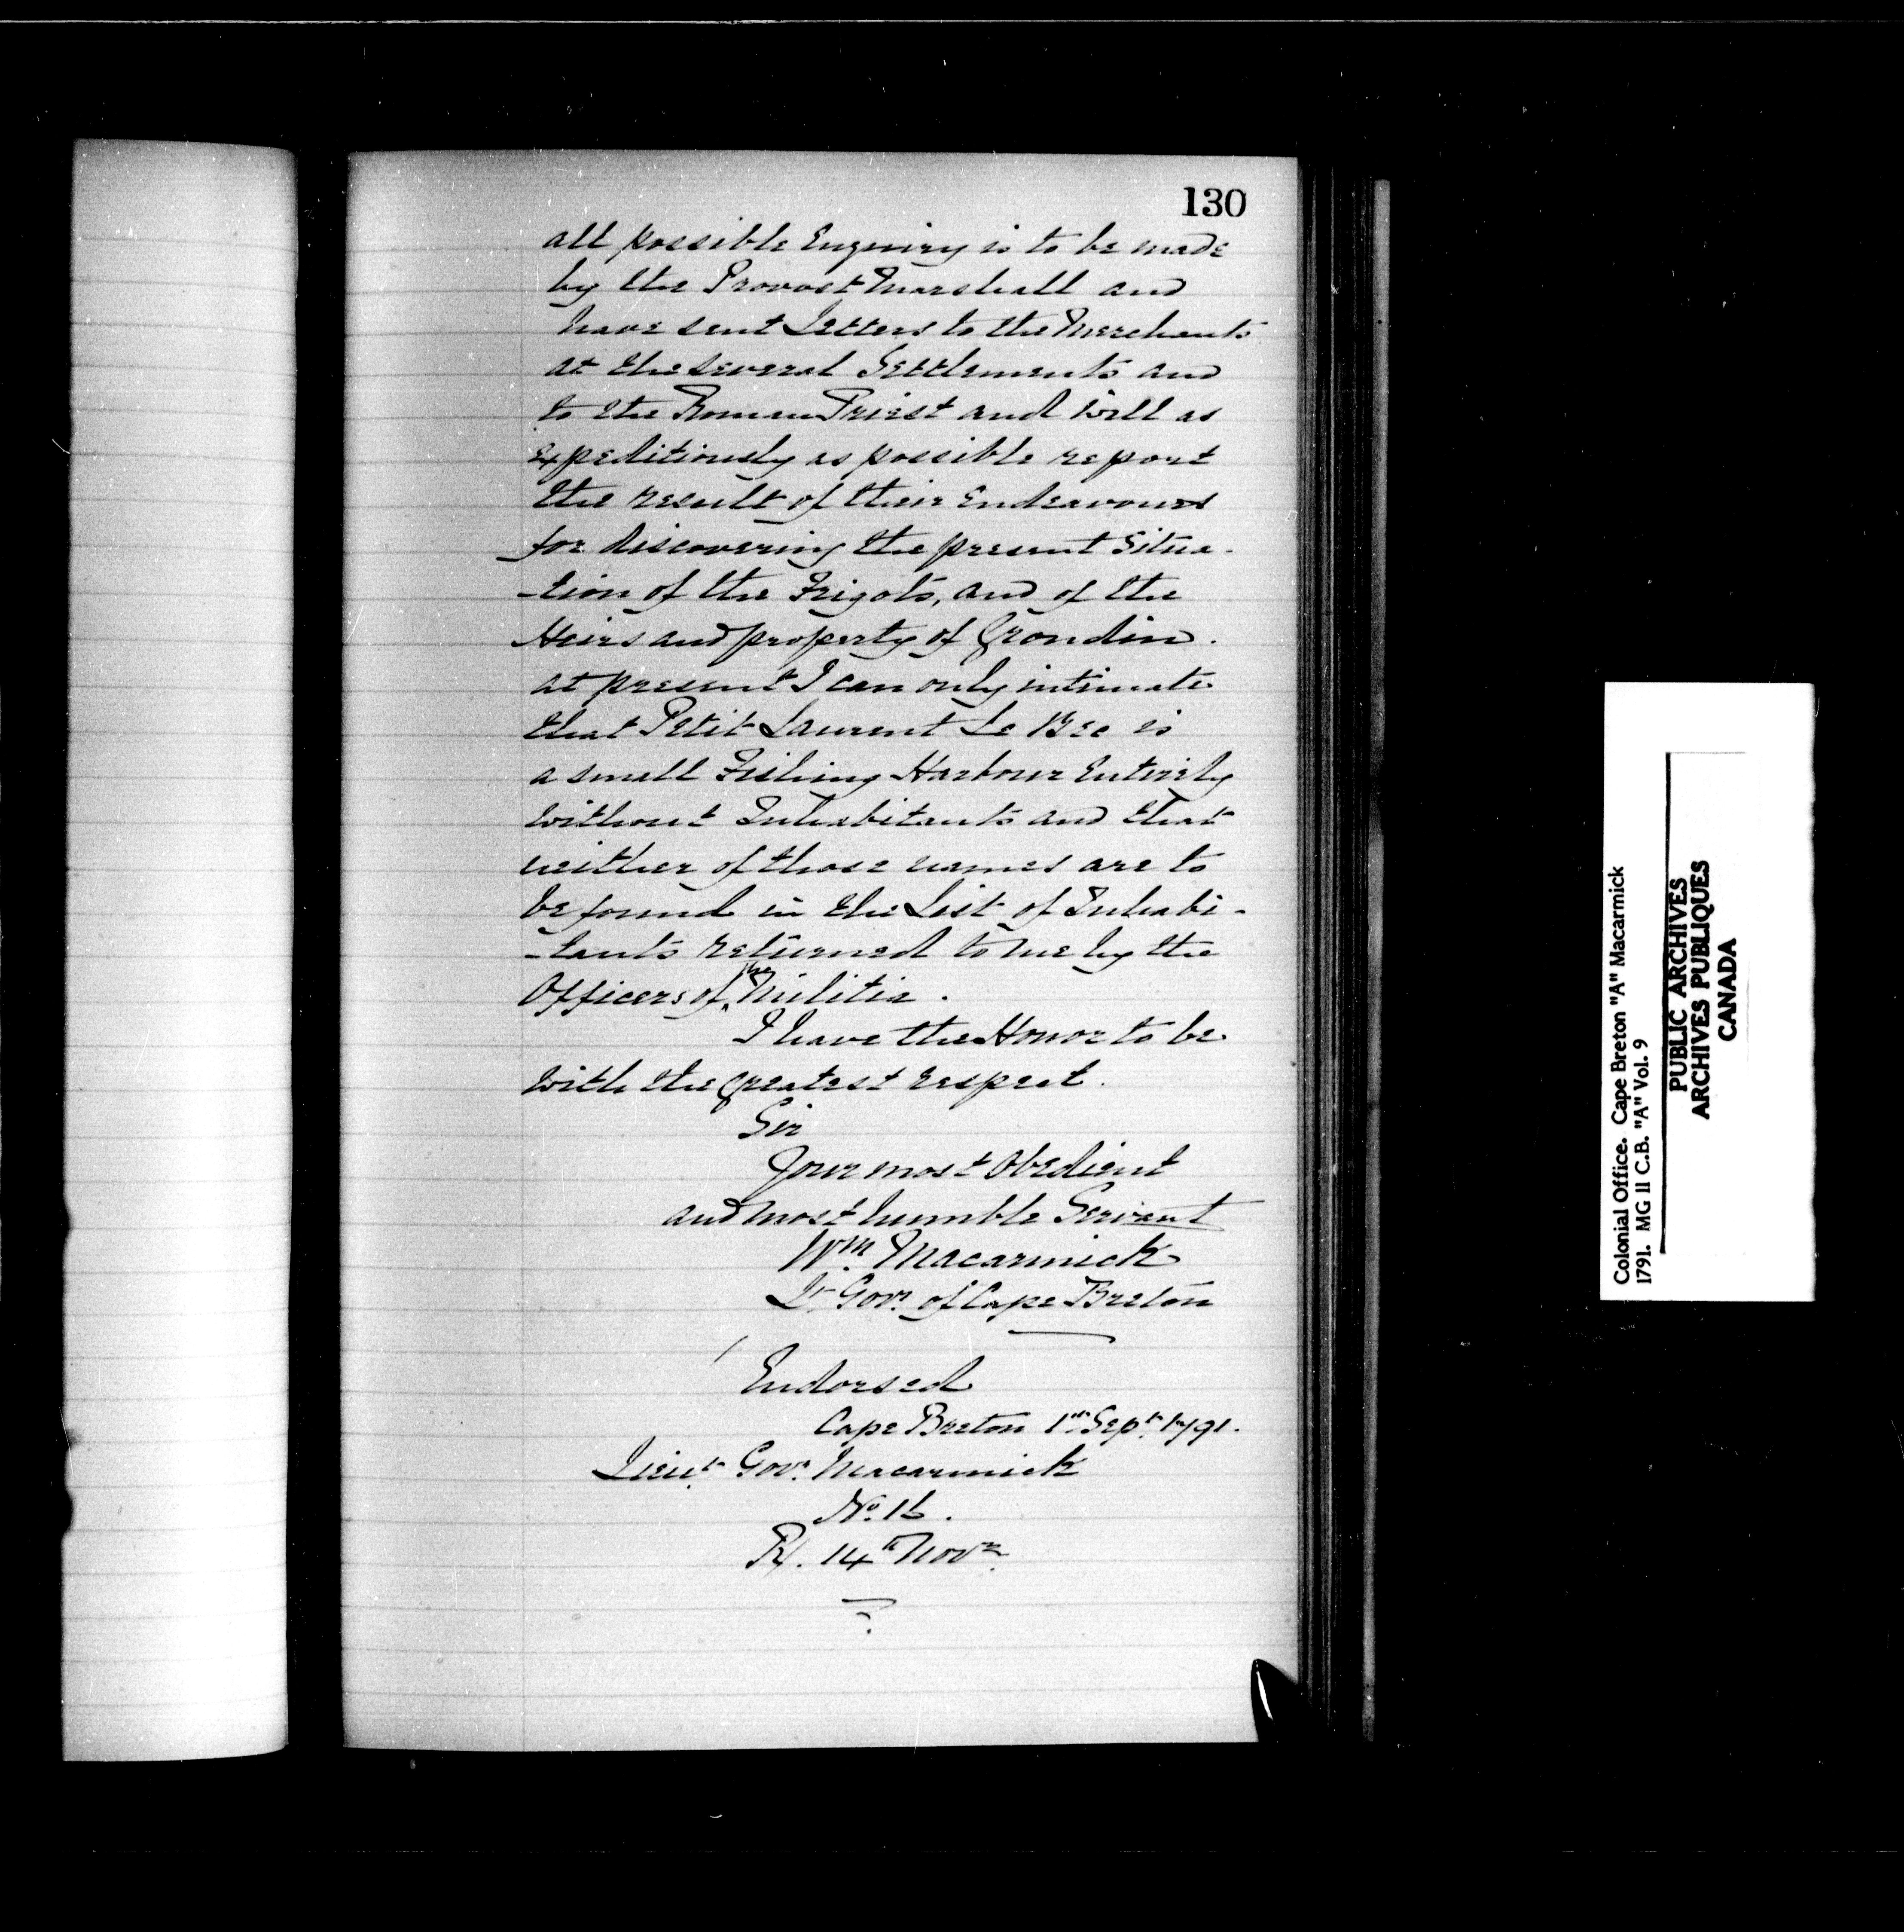 130
all possible Enquiry is to be made
by the Provost Marshall and
have sent Letters to the Merchants
at the several Settlements and
to the Roman Priest and will as
expeditiously as possible report
the result of their Endeavours
for discovering the present Situa-
-tion of the Frigots, and of the
Heirs and property of Grondin.
at present I can only intimate
that Petit Laurent Le Bec is
a small Fishing Harbour Entirely
without Inhabitants and that
neither of those names are to
be found in the List of Inhabi-
-tants returned to me by the
Officers of the Militia.
I have the Honor to be
with the greatest respect.
Sir
Your most Obedient
and most humble Servant
Wm. Macarmick
Lt Govr. of Cape Breton
Endorsed
Cape Breton 1st Sept. 1791.
Lieut. Govr. Macarmick
No. 16.
R/. 14th Novr.
Colonial Office. Cape Breton "A" Macarmick
1791. MG 11 C.B. "A" Vol. 9
PUBLIC ARCHIVES
ARCHIVES PUBLIQUES
CANADA